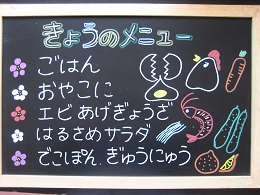 きょうのメニュー
ごはん
おやこに
エビあげぎょうざ
はるさめサラダ
でこぽん、ぎゅうにゅう